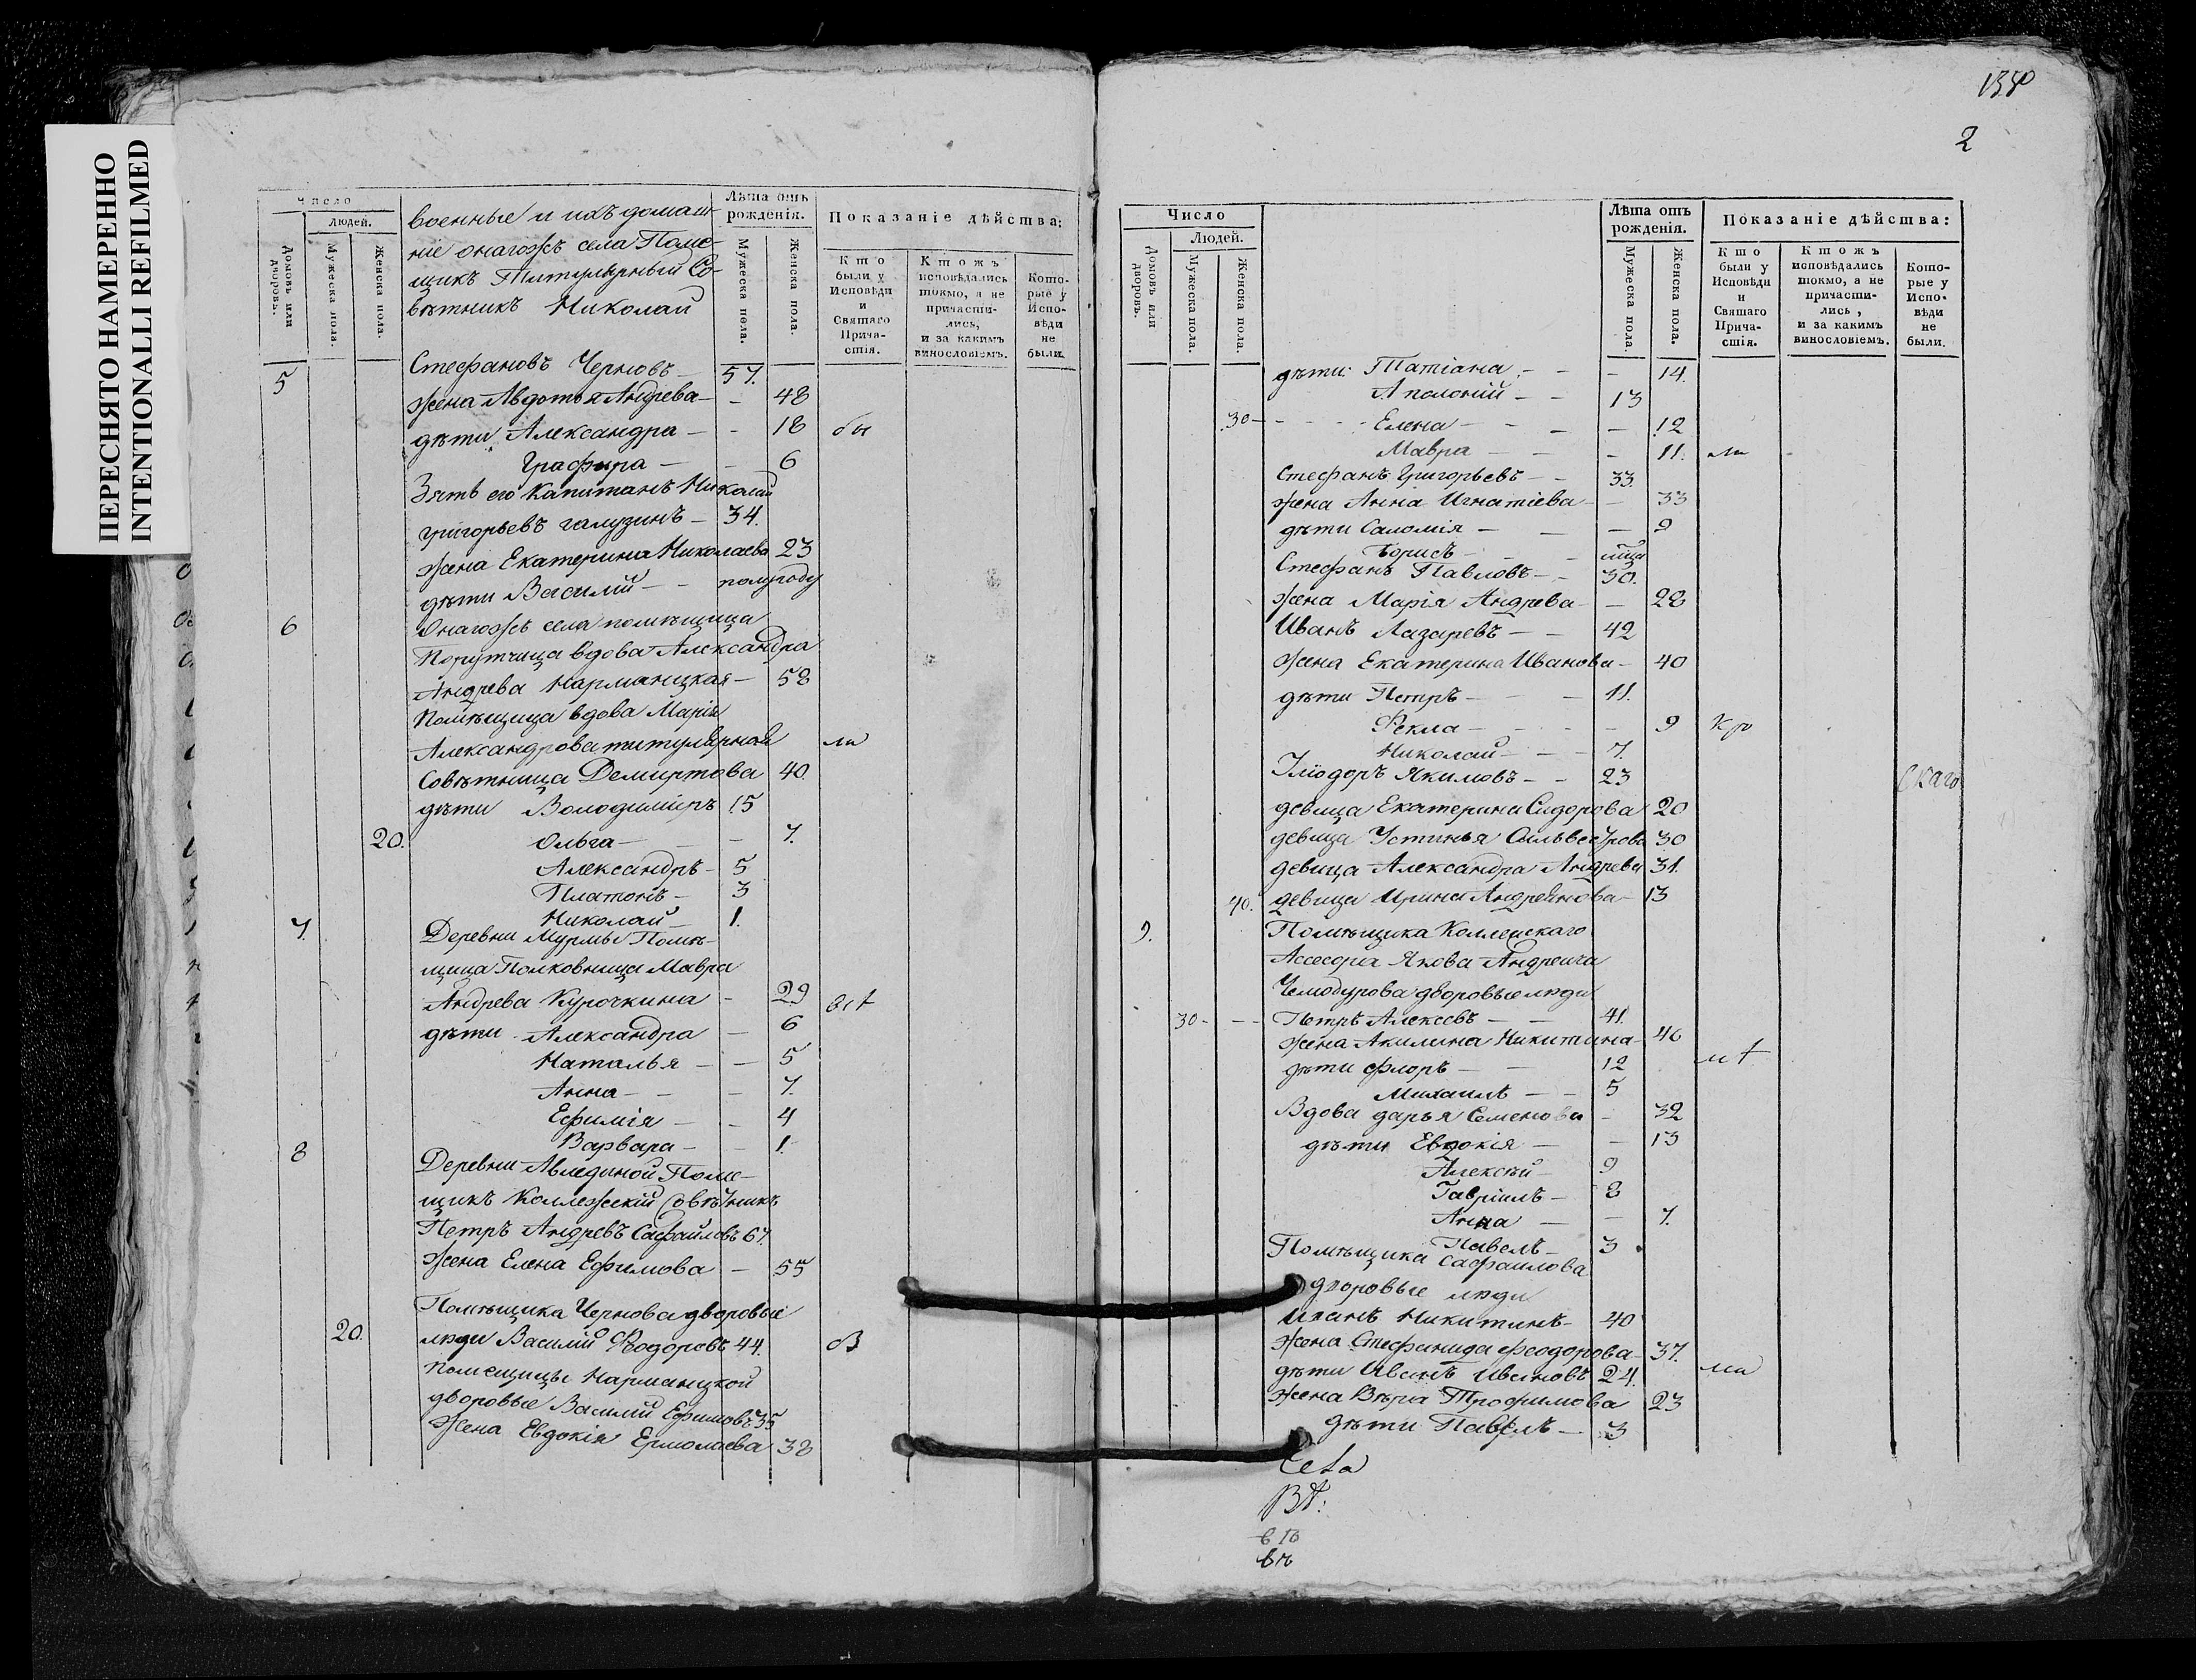 ПЕРЕСНЯТО НАМЕРЕННО
INTENTIONALLI REFILMED
Число
Людей.
Домовъ или дворовъ.
Мужеска пола.
Женска пола.
военные и ихъ домаш-
ніе онагожъ села Поме-
щикъ Титулярный Со-
вѣтникъ Николай
Лѣта отъ рожденія.
Мужеска пола.
Женска пола.
Показаніе дѣйства:
Кто были у Исповѣди и Святаго Прича-стія.
Ктожъ исповѣдались токмо, а не причасти-лись, и за какимъ винословіемъ.
Кото-рые у Испо-вѣди не были.
5 Стефановъ Черновъ 57.
жена Авдотья Андрева — - 48
дѣти Александра — - 18 бы
Графира — - 6
Зять его Капитанъ Николай
Григорьевъ Галузинъ — 34.
жена Екатерина Николаева 23
дѣти Василий - - полугоду
6 Онагожъ села помѣщица
Порутчица вдова Александра
Андрева Нармацкая — 58
Помѣщица вдова Марія
Александрова титулярная ли
Совѣтница Демиртова 40
дѣти Володимиръ 15
20. Ольга — - 7.
Александръ - 5
Платонъ - 3
Николай - 1.
7. Деревни Мурмы Помѣ-
щица Полковница Мавра
Андрева Курочкина - 29 вст
дѣти Александра — 6
Наталья - — 5
Анна - - 7.
Ефимія - - 4
Варвара - - 1.
8 Деревни Авлединой Поме-
щикъ Коллежскій Совѣтникъ
Петръ Андревъ Сафайловъ 67.
жена Елена Ефимова — 55
Помѣщика Чернова дворовые
20. люди Василий Ѳодоровъ 44. ов
Помещицы Нармацкой
дворовые Василий Ефимовъ 35
жена Евдокія Ермолаева 38
2
Число
Людей.
Домовъ или дворовъ.
Мужеска пола.
Женска пола.
Лѣта отъ рожденія.
Мужеска пола.
Женска пола.
Показаніе дѣйства:
Кто были у Исповѣди и Святаго Прича-стія.
Ктожъ исповѣдались токмо, а не причасти-лись, и за какимъ винословіемъ.
Кото-рые у Испо-вѣди не были.
дѣти Татіана - - - 14.
Аполоній - - 13
30 - - - Елена - - — 12
Мавра — - - 11. ли
Стефанъ Григорьевъ - - 33.
жена Анна Игнатіева - — 33
дѣти Саломія — - — 9
Борисъ - -
Стефанъ Павловъ - - 30.
жена Марія Андрева - — 28
Иванъ Лазаревъ — - 42
жена Екатерина Иванова - 40
дѣти Петръ - - - 11.
Ѳекла - - - - 9 кро
Николай - - - 7.
Іліодоръ Якимовъ - - 23 скаго
девица Екатерина Сидорова 20
девица Устинья Сильвестрова 30
девица Александра Андрева 31.
40. девица Ирина Андреянова - 13
9. Помѣщика Коллежскаго
Ассесора Якова Андреича
Чемодурова дворовые люди
30 - - - Петръ Алексевъ - — 41.
жена Акилина Никитина - 46
дѣти Флоръ — - 12 ит
Михаилъ - - 5
Вдова Дарья Семенова - 32
дѣти Евдокія — - 13
Алексѣй - 9
Гавріилъ - 8
Анна — - 7.
Павелъ - 3
Помѣщика Сафаилова
дворовые люди
Иванъ Никитинъ - 40
жена Стефанида Феодорова - 37.
дѣти Иванъ Ивановъ 24. ли
жена Вѣра Трофимова 23
дѣти Павелъ — 3
Села